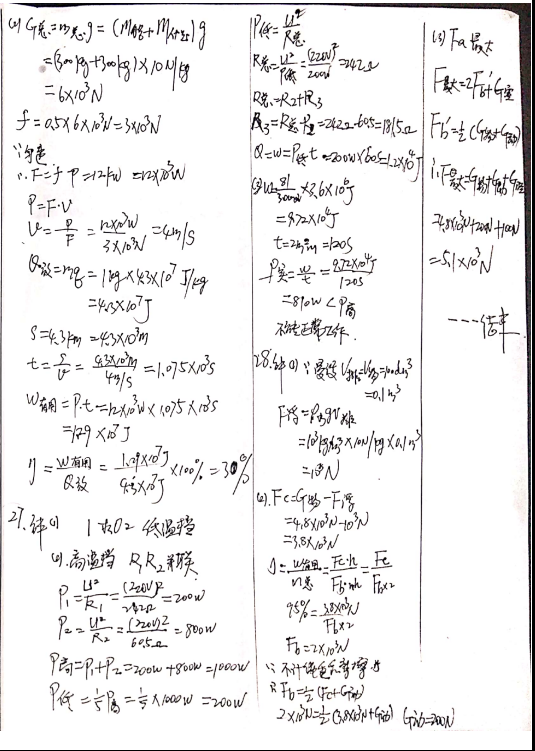 (2) G总=m总g=(m月球+m灯)g
=(300kg+300kg)×10N/kg
=6×10³N
f=0.5×6×10³N=3×10³N
∵匀速
∴F=f P=12kw=12×10³W
P=F·V
V=P/F=12×10³W/3×10³N=4m/s
Q放=mq=1kg×4.3×10⁷J/kg
=4.3×10⁷J
S=4.3km=4.3×10³m
t=S/V=4.3×10³m/4m/s=1.075×10³s
W有用=P·t=12×10³W×1.075×10³s
=1.29×10⁷J
η=W有用/Q放=1.29×10⁷J/4.3×10⁷J×100%=30%
27.解(1) 1 2 低温挡
(2).高温挡 R₁R₂并联
P₁=U²/R₁=(220V)²/242Ω=200w
P₂=U²/R₂=(220V)²/60.5Ω=800w
P高=P₁+P₂=200w+800w=1000w
P低=1/5P高=1/5×1000w=200w
P低=U²/R总
R总=U²/P低=(220V)²/200w=242Ω
R总=R₂+R₃
R₃=R总-R₂=242Ω-60.5=181.5Ω
Q=W=P低t=200w×60s=1.2×10⁴J
(3)W=81/3000×3.6×10⁶J
=9.72×10⁴J
t=2min=120s
P实=W/t=9.72×10⁴J/120s
=810w<P高
不能正常工作.
28.解(1)∵浸没V排=V物=100dm³
=0.1m³
F浮=ρ水gV排
=10³kg/m³×10N/kg×0.1m³
=10³N
(2).Fc=G物-F浮
=4.8×10³N-10³N
=3.8×10³N
η=W有用/W总=Fc·h/Fb·nh=Fc/Fb×2
95%=3.8×10³N/Fb×2
Fb=2×10³N
∵不计绳重和摩擦
∴Fb=½(Fc+G动)
2×10³N=½(3.8×10³N+G动) G动=200N
(3)Fa最大
F最大=2Fb'+G定
Fb'=½(G物+G动)
∴F最大=G物+G动+G定
=4.8×10³N+200N+100N
=5.1×10³N